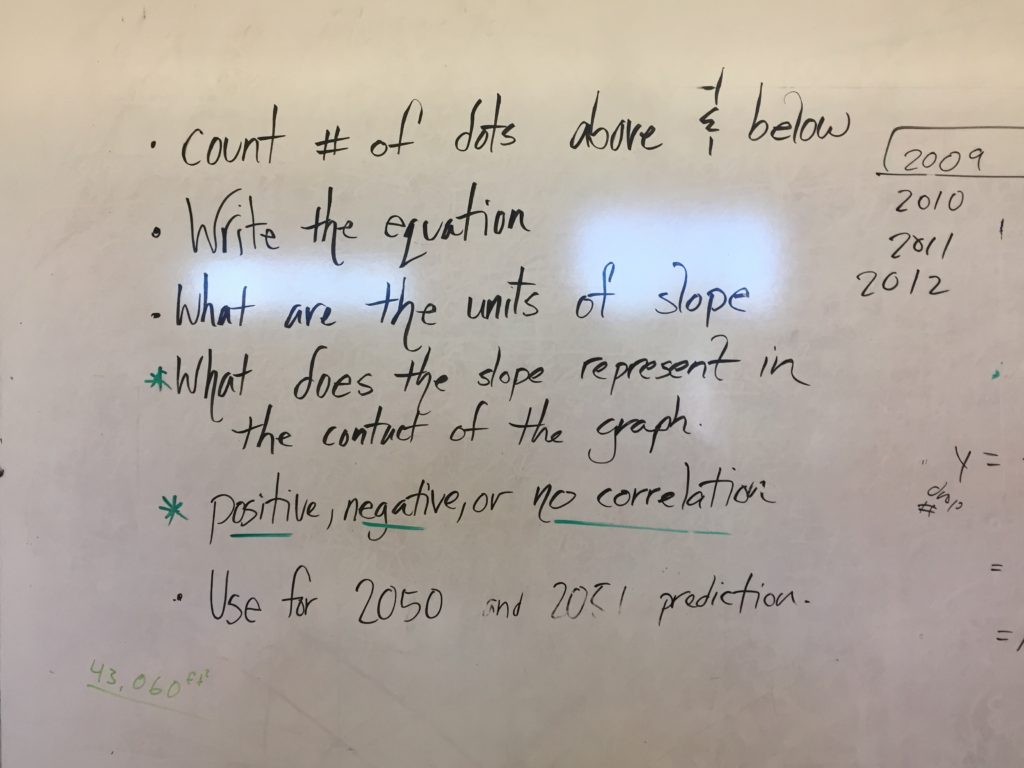 · Count # of dots above & below
· Write the equation
· What are the units of slope
* What does the slope represent in
the contact of the graph.
* positive, negative, or no correlation
· Use for 2050 and 2051 prediction.
43,060 ft²
2009
2010
2011
2012
y =
#
=
=